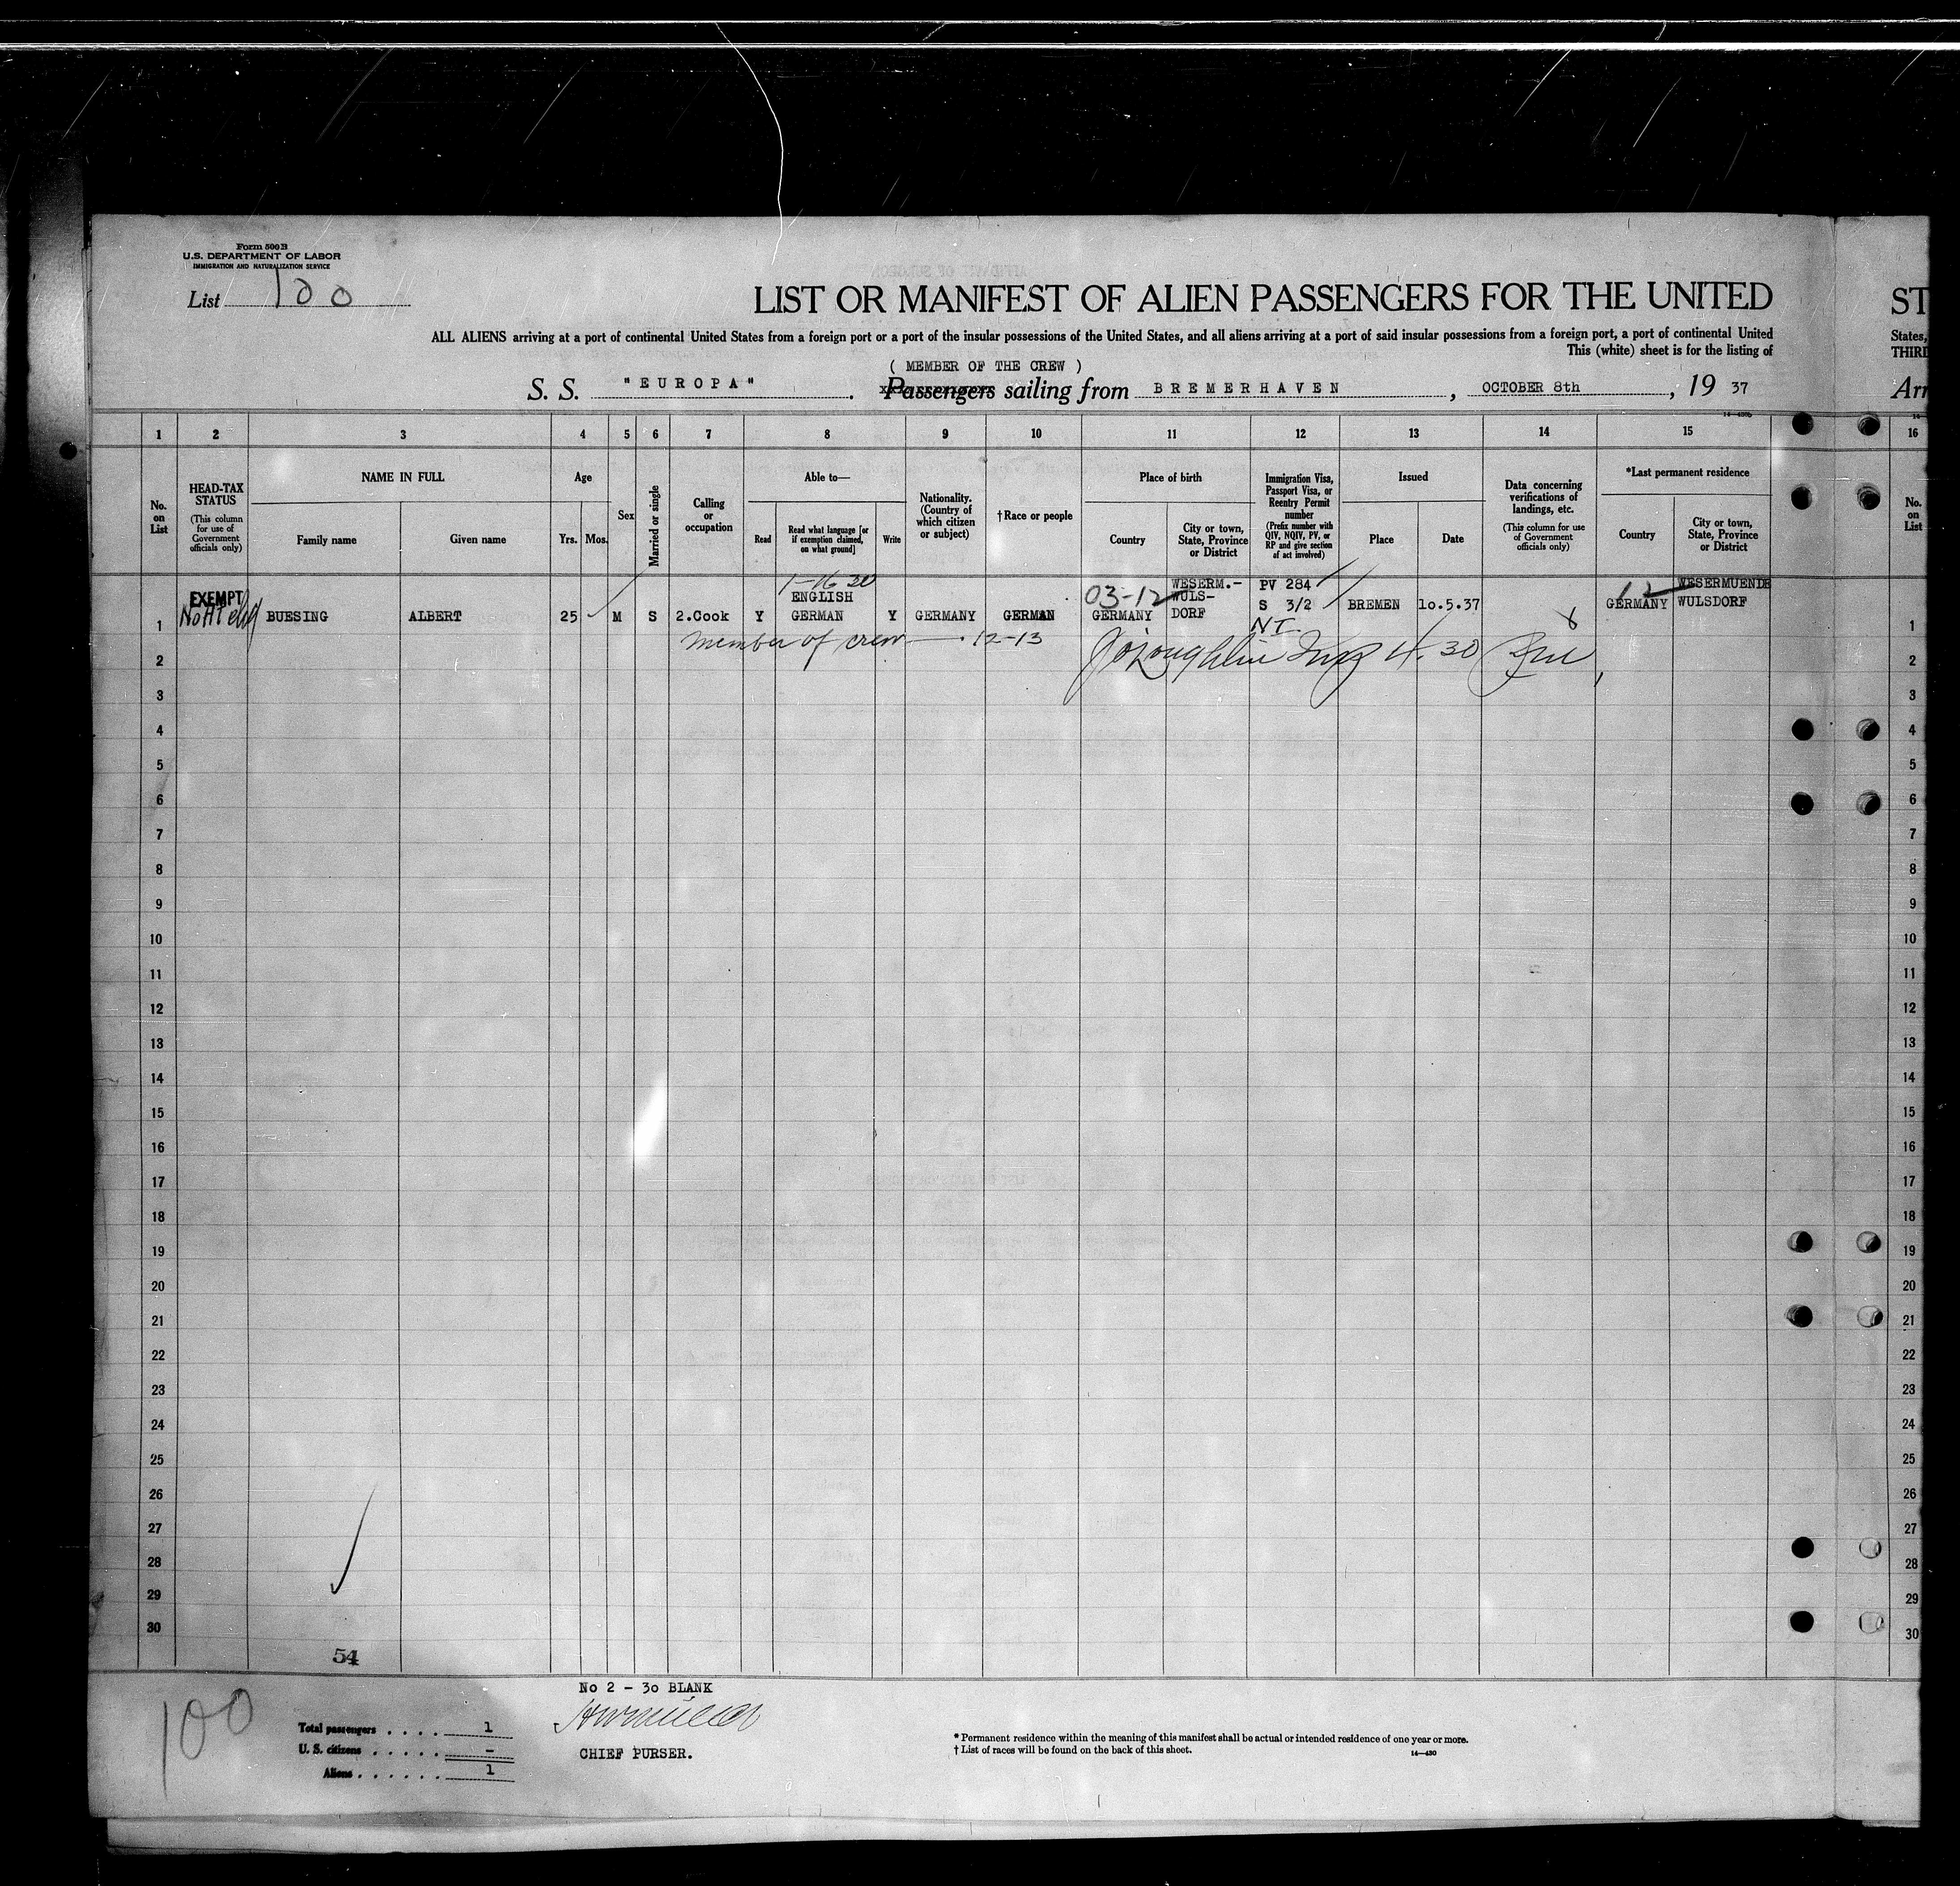 Form 500 B
U.S. DEPARTMENT OF LABOR
IMMIGRATION AND NATURALIZATION SERVICE
List 100
LIST OR MANIFEST OF ALIEN PASSENGERS FOR THE UNITED
ST
ALL ALIENS arriving at a port of continental United States from a foreign port or a port of the insular possessions of the United States, and all aliens arriving at a port of said insular possessions from a foreign port, a port of continental United
States,
This (white) sheet is for the listing of
THIRD
( MEMBER OF THE CREW )
S. S. "EUROPA" . Passengers sailing from BREMERHAVEN , OCTOBER 8th , 19 37
Arr
1 2 3 4 5 6 7 8 9 10 11 12 13 14 15 16
No. on List
HEAD-TAX STATUS (This column for use of Government officials only)
NAME IN FULL
Family name
Given name
Age
Yrs. Mos.
Sex
Married or single
Calling or occupation
Able to—
Read
Read what language [or if exemption claimed, on what ground]
Write
Nationality. (Country of which citizen or subject)
†Race or people
Place of birth
Country
City or town, State, Province or District
Immigration Visa, Passport Visa, or Reentry Permit number (Prefix number with QIV, NQIV, PV, or RP and give section of act involved)
Issued
Place
Date
Data concerning verifications of landings, etc. (This column for use of Government officials only)
*Last permanent residence
Country
City or town, State, Province or District
No. on List
EXEMPT
1 BUESING ALBERT 25 M S 2.Cook Y ENGLISH GERMAN Y GERMANY GERMAN 03-12 GERMANY WESERM.- WULS- DORF PV 284 S 3/2 NI BREMEN 10.5.37 12 GERMANY WESERMUENDE WULSDORF 1
member of crew 12-13
2 2
3 3
4 4
5 5
6 6
7 7
8 8
9 9
10 10
11 11
12 12
13 13
14 14
15 15
16 16
17 17
18 18
19 19
20 20
21 21
22 22
23 23
24 24
25 25
26 26
27 27
28 28
29 29
30 30
54
No 2 - 30 BLANK
100
Total passengers . . . . 1
U. S. citizens . . . . . -
Aliens . . . . . . 1
CHIEF PURSER.
* Permanent residence within the meaning of this manifest shall be actual or intended residence of one year or more.
† List of races will be found on the back of this sheet.
14—430